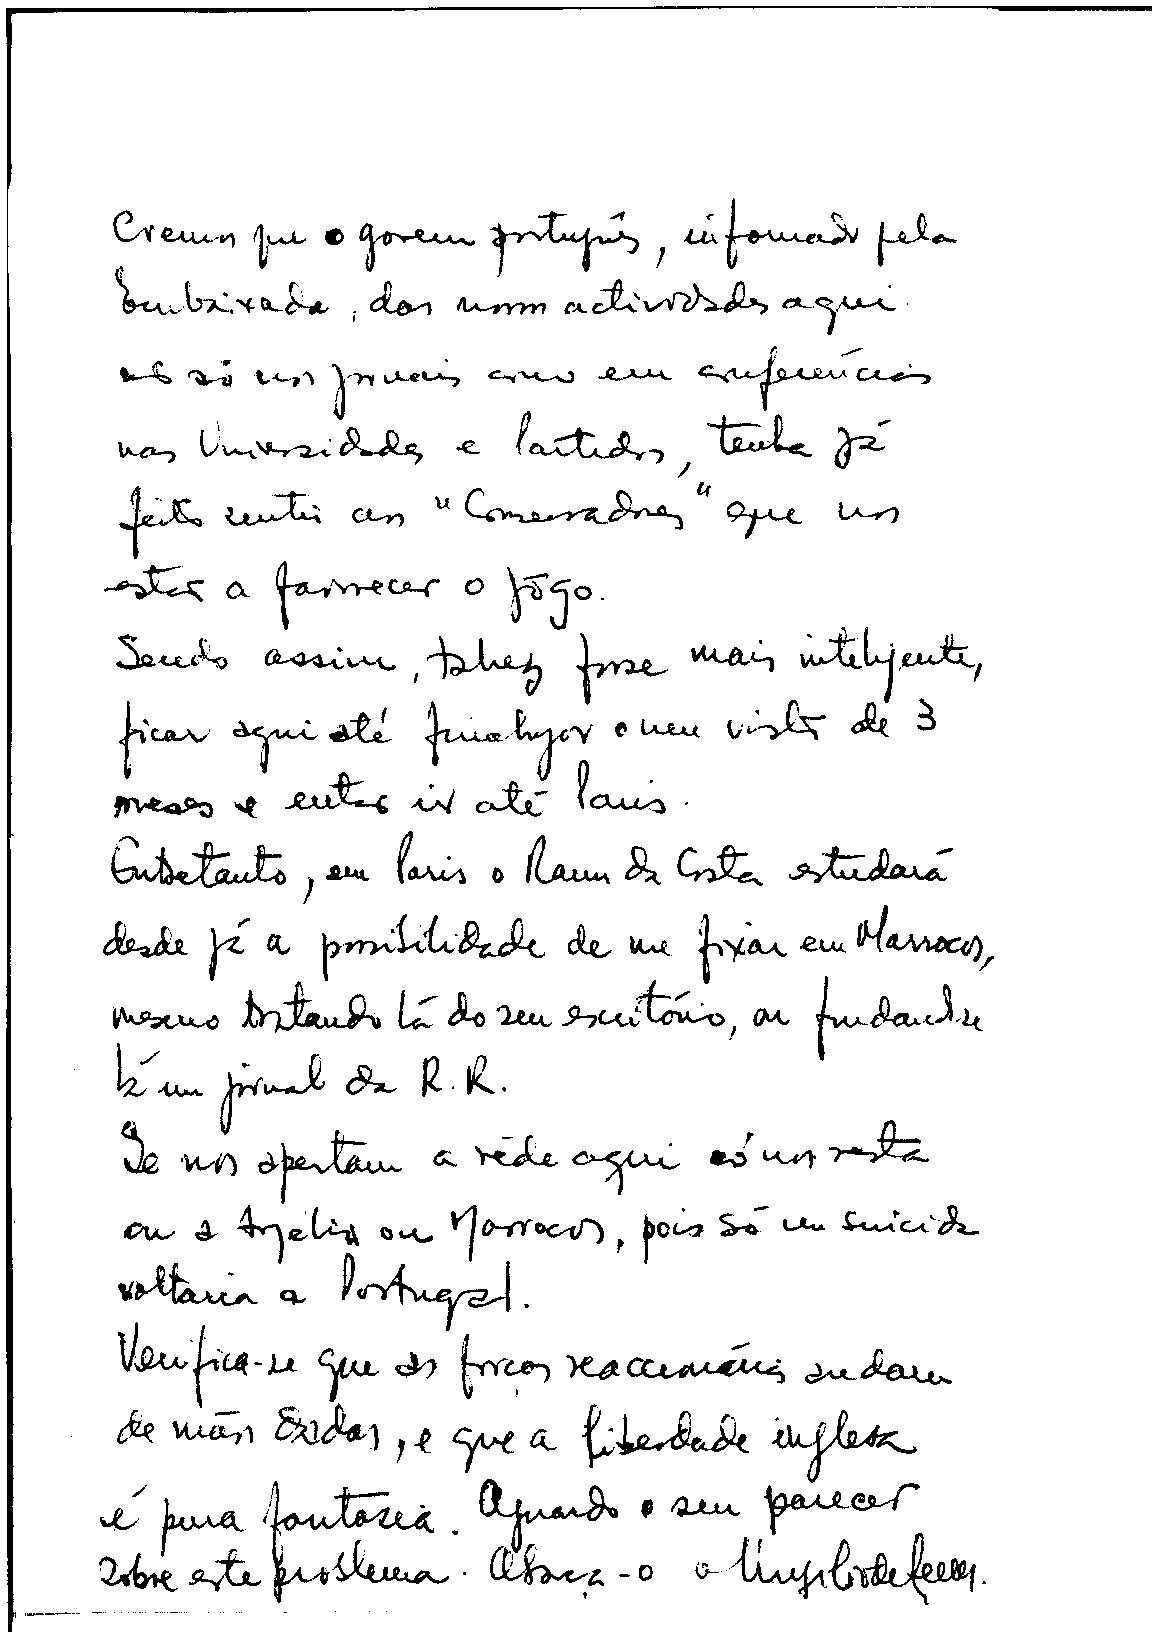 Cremos que o governo português, informado pela
Embaixada, das nossas actividades aqui
não só nos jornais como em conferências
nas Universidades e Partidos, tenha já
feito sentir aos "Conservadores" que nos
estão a favorecer o jôgo.
Sendo assim, talvez fosse mais inteligente,
ficar aqui até finalizar o meu visto de 3
meses e então ir até Paris.
Entretanto, em Paris o Ramos da Costa estudará
desde já a possibilidade de me fixar em Marrocos,
mesmo tratando lá do seu escritório, ou fundando-se
lá um jornal da R.R.
Se nos apertam a rêde aqui só nos resta
ou a Argélia ou Marrocos, pois só um suicida
voltaria a Portugal.
Verifica-se que as forças reaccionárias andam
de mãos dadas, e que a liberdade inglesa
é pura fantasia. Aguardo o seu parecer
sobre este problema. Abraça-o o